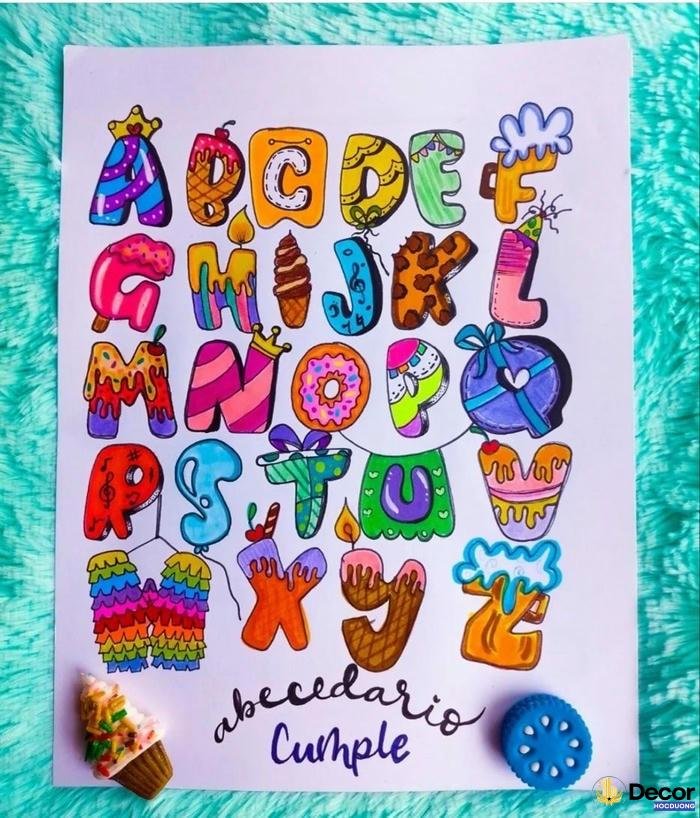 A B C D E F
G H I J K L
M N O P Q
R S T U V
W X Y Z
abecedario
Cumple
Decor
HOCDUONG